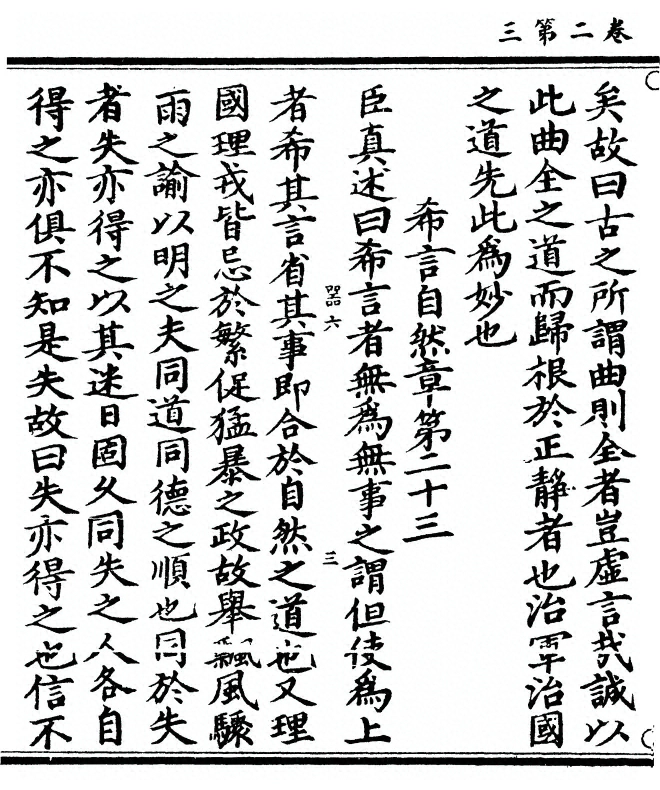 卷二第三
矣故曰古之所謂曲則全者豈虛言㢤誠以
此曲全之道而歸根於正靜者也治軍治國
之道先此為妙也
希言自然章第二十三
臣真述曰希言者無為無事之謂但使為上
者希其言省其事即合於自然之道也又理
國理戎皆忌於繁促猛暴之政故舉飄風驟
雨之諭以明之夫同道同德之順也同於失
者失亦得之以其迷日固久同失之人各自
得之亦俱不知是失故曰失亦得之也信不
器六
三